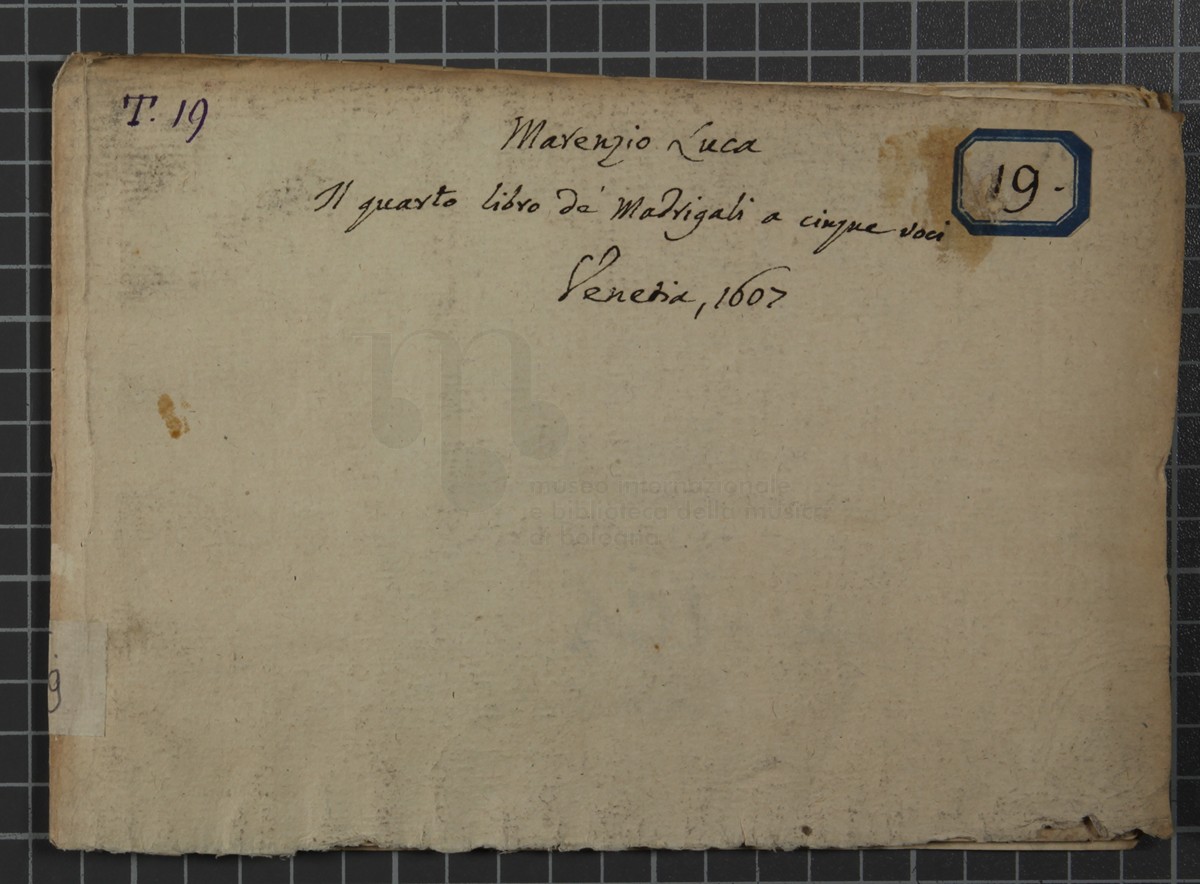 T. 19
Marenzio Luca
19.
Il quarto libro de' Madrigali a cinque voci
Venetia, 1607
museo internazionale
e biblioteca della musica
di Bologna
9